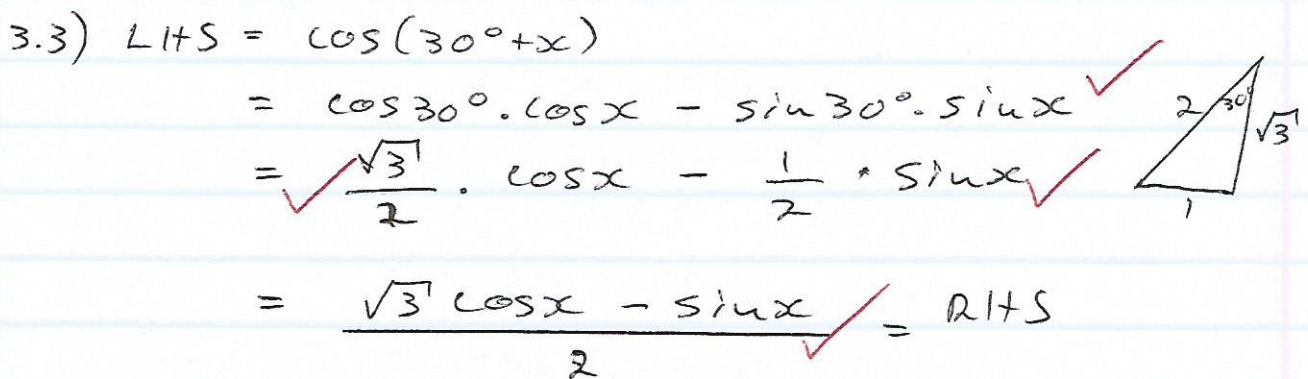 3.3) LHS = cos(30°+x)
= cos30°.cosx - sin30°.sinx
= √3/2 . cosx - 1/2 . sinx
= (√3 cosx - sinx)/2 = RHS
2 30° √3
1